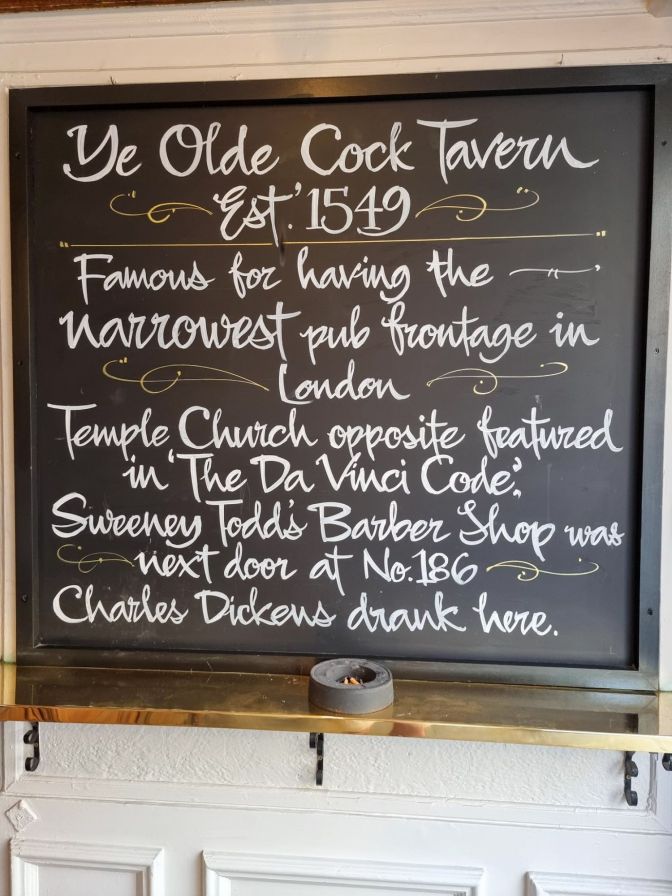 Ye Olde Cock Tavern
Est. 1549
Famous for having the
narrowest pub frontage in
London
Temple Church opposite featured
in 'The Da Vinci Code'.
Sweeney Todd's Barber Shop was
next door at No.186
Charles Dickens drank here.